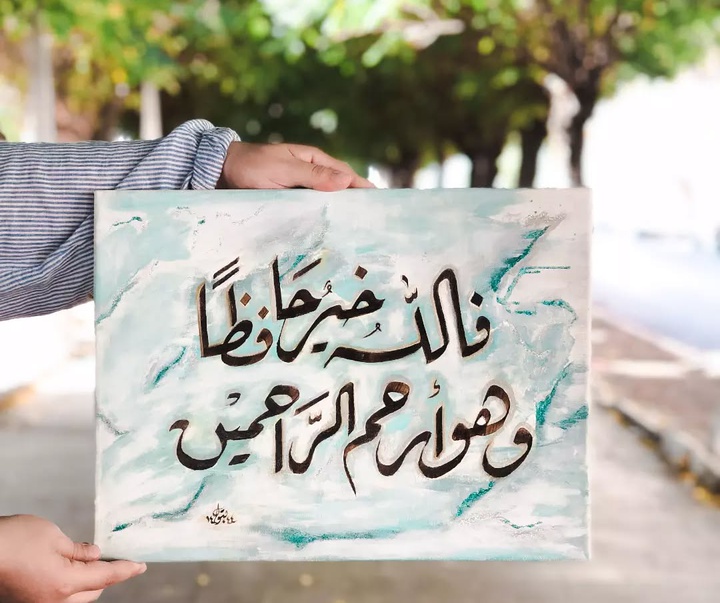 فالله خير حافظًا
وهو أرحم الرَّاحمين